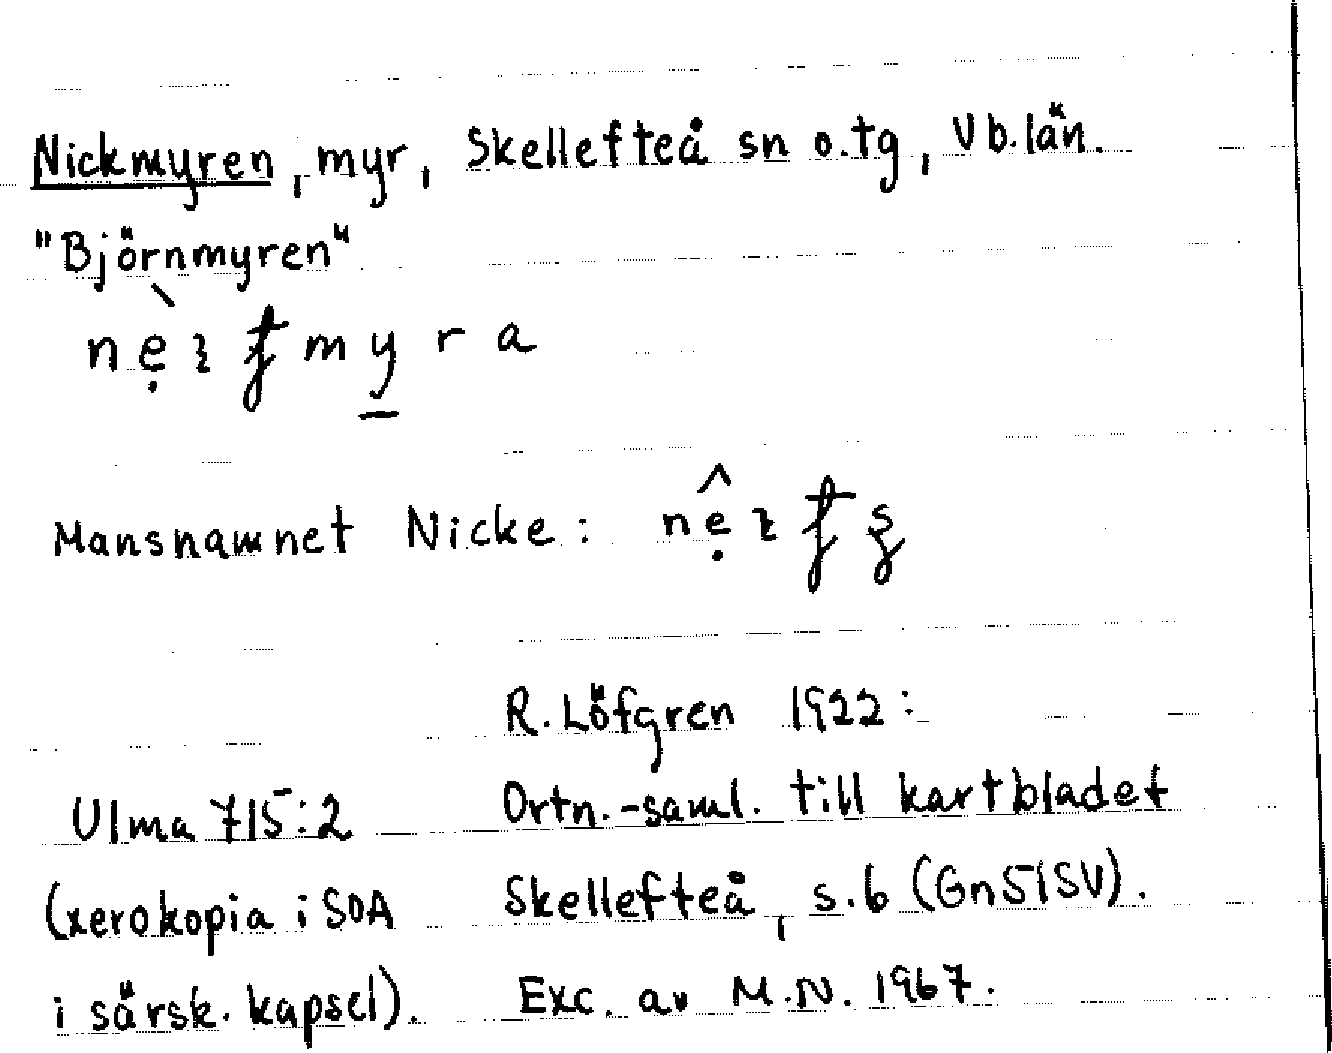 Nickmyren, myr, Skellefteå sn o. tg, Vb. län.
"Björnmyren"
myra
Mansnamnet Nicke:
R. Löfgren 1922:
Ulma 715:2 Ortn.-saml. till kartbladet
(xerokopia i SOA Skellefteå, s. 6 (Gn51SV).
i särsk. kapsel). Exc. av M.N. 1967.